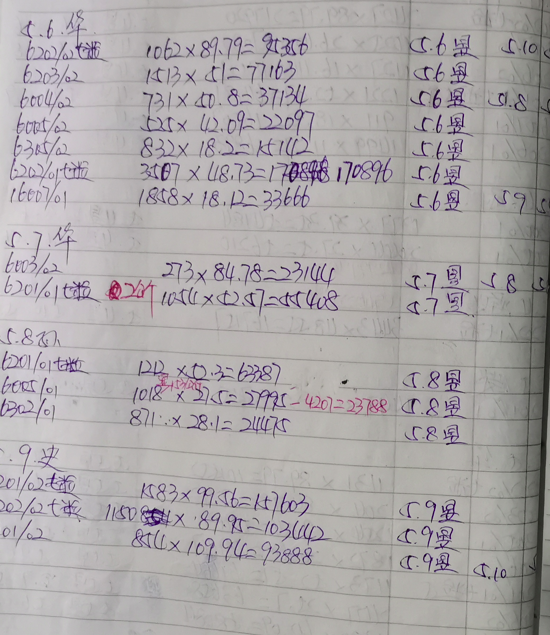 5.6.华
6202/02七粒 1062×89.79=95356 5.6昱 5.10
6203/02 1513×51=77163 5.6昱
6004/02 731×50.8=37134 5.6昱 5.8
6005/02 525×42.09=22097 5.6昱
6305/02 832×18.2=15142 5.6昱
6202/01七粒 3507×48.73=170896 170896 5.6昱
16007/01 1858×18.12=33666 5.6昱 5.9
5.7.华
6003/02 273×84.78=23144 5.7昱 5.8
6201/01七粒 22个 1054×52.57=55408 5.7昱
5.8
6201/01七粒 1212×52.3=63387 5.8昱
6005/01 1018×27.5=27995-4207=23788 5.8昱
6302/01 871×28.1=24475 5.8昱
.9.史
201/02七粒 1583×99.56=157603 5.9昱
202/02七粒 1150×89.95=103442 5.9昱
01/02 854×109.94=93888 5.9昱 5.10